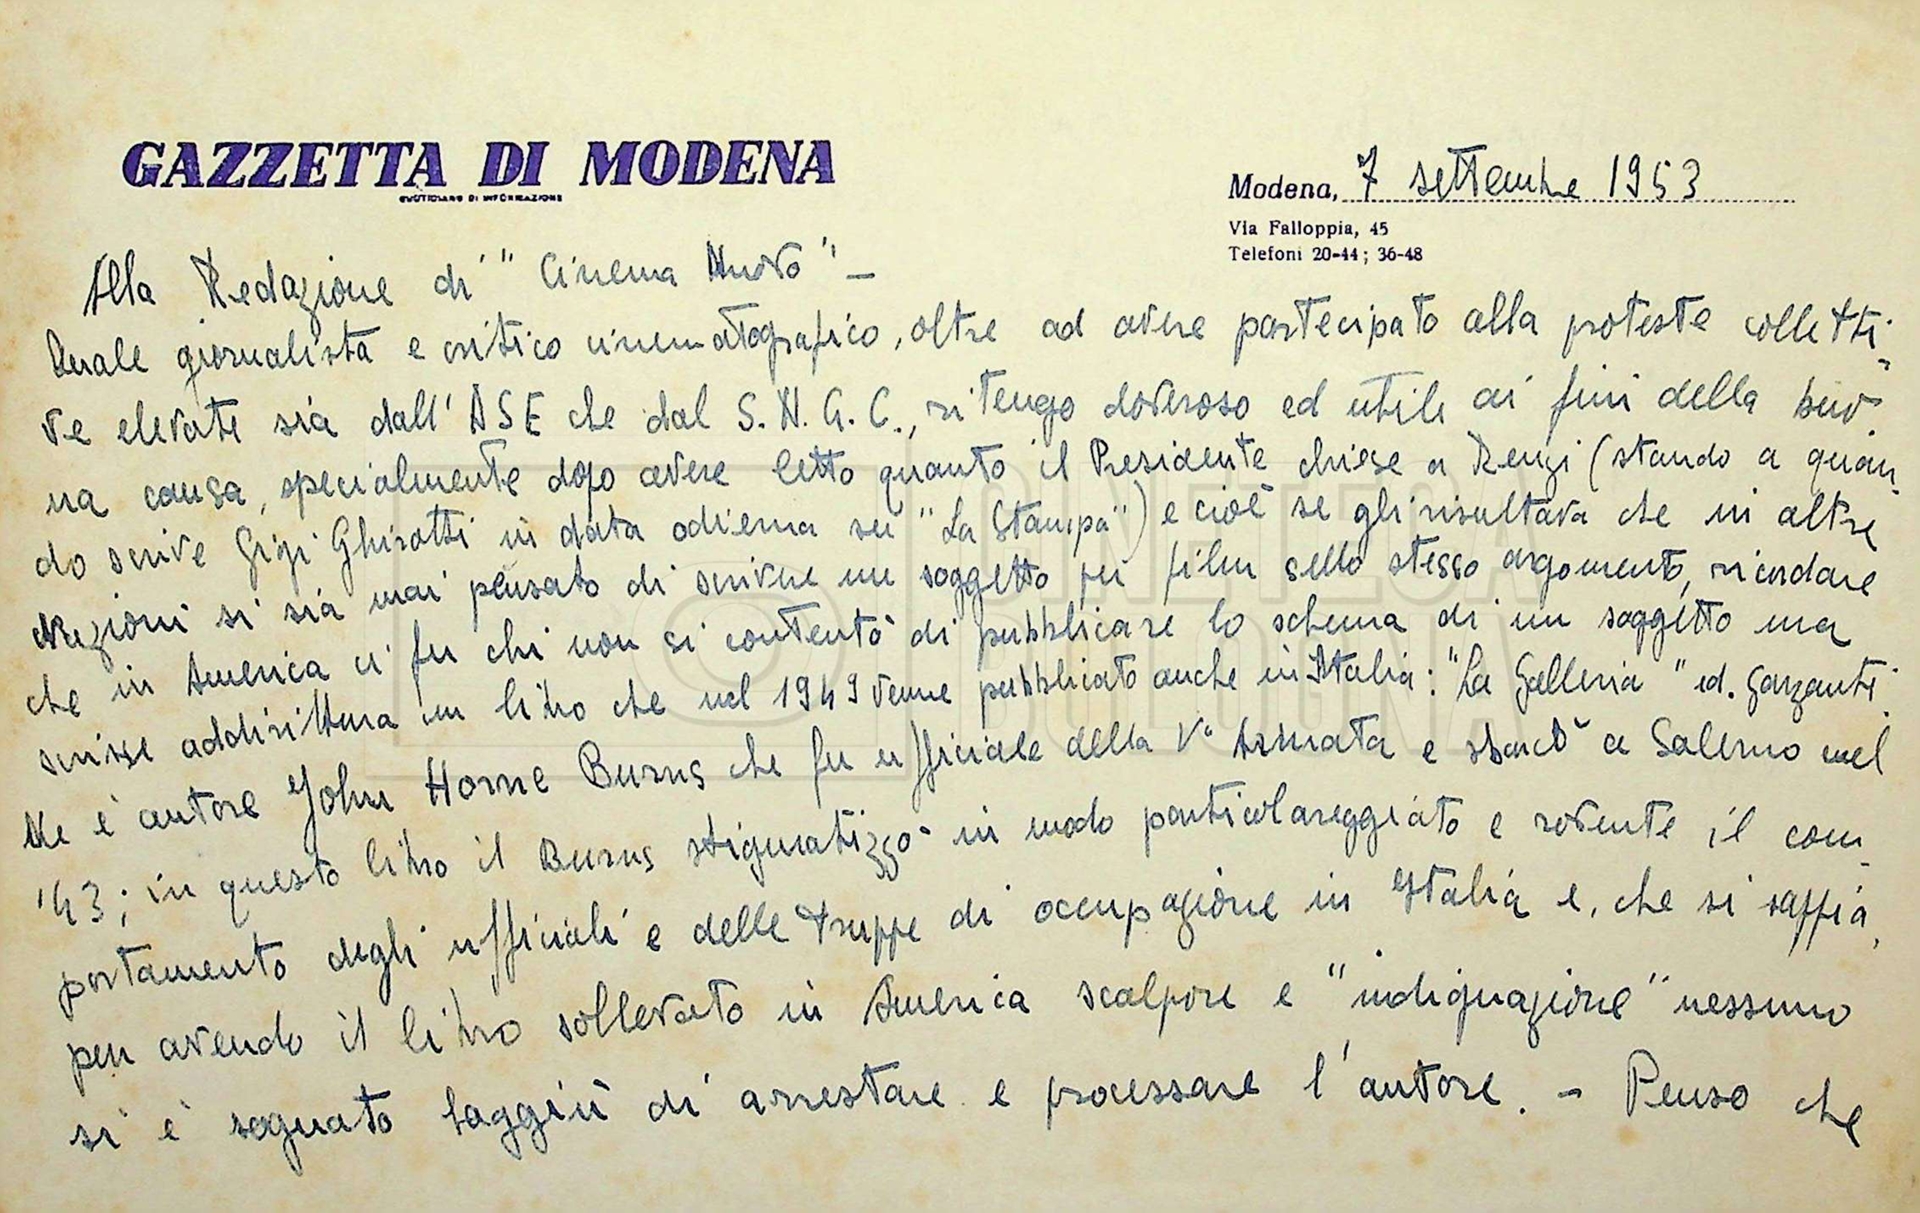 GAZZETTA DI MODENA
QUOTIDIANO DI INFORMAZIONE
Modena, 7 settembre 1953
Via Falloppia, 45
Telefoni 20-44; 36-48
Alla Redazione di "Cinema Nuovo" —
Quale giornalista e critico cinematografico, oltre ad avere partecipato alla proteste colletti-
ve elevate sia dall'ASE che dal S.N.G.C., ritengo doveroso ed utile ai fini della buo-
na causa, specialmente dopo avere letto quanto il Presidente chiese a Renzi (stando a quan-
do scrive Gigi Ghirotti in data odierna su "La Stampa") e cioè se gli risultava che in altre
Nazioni si sia mai pensato di scrivere un soggetto per film sullo stesso argomento, ricordare
che in America ci fu chi non si contentò di pubblicare lo schema di un soggetto ma
scrisse addirittura un libro che nel 1949 venne pubblicato anche in Italia: "La Galleria" ed. Garzanti.
Ne è autore John Horne Burns che fu ufficiale della Vª Armata e sbarcò a Salerno nel
'43; in questo libro il Burns stigmatizzò in modo particolareggiato e rovente il com-
portamento degli ufficiali e delle truppe di occupazione in Italia e, che si sappia,
pur avendo il libro sollevato in America scalpore e "indignazione" nessuno
si è sognato laggiù di arrestare e processare l'autore. - Penso che
CINETECA
BOLOGNA